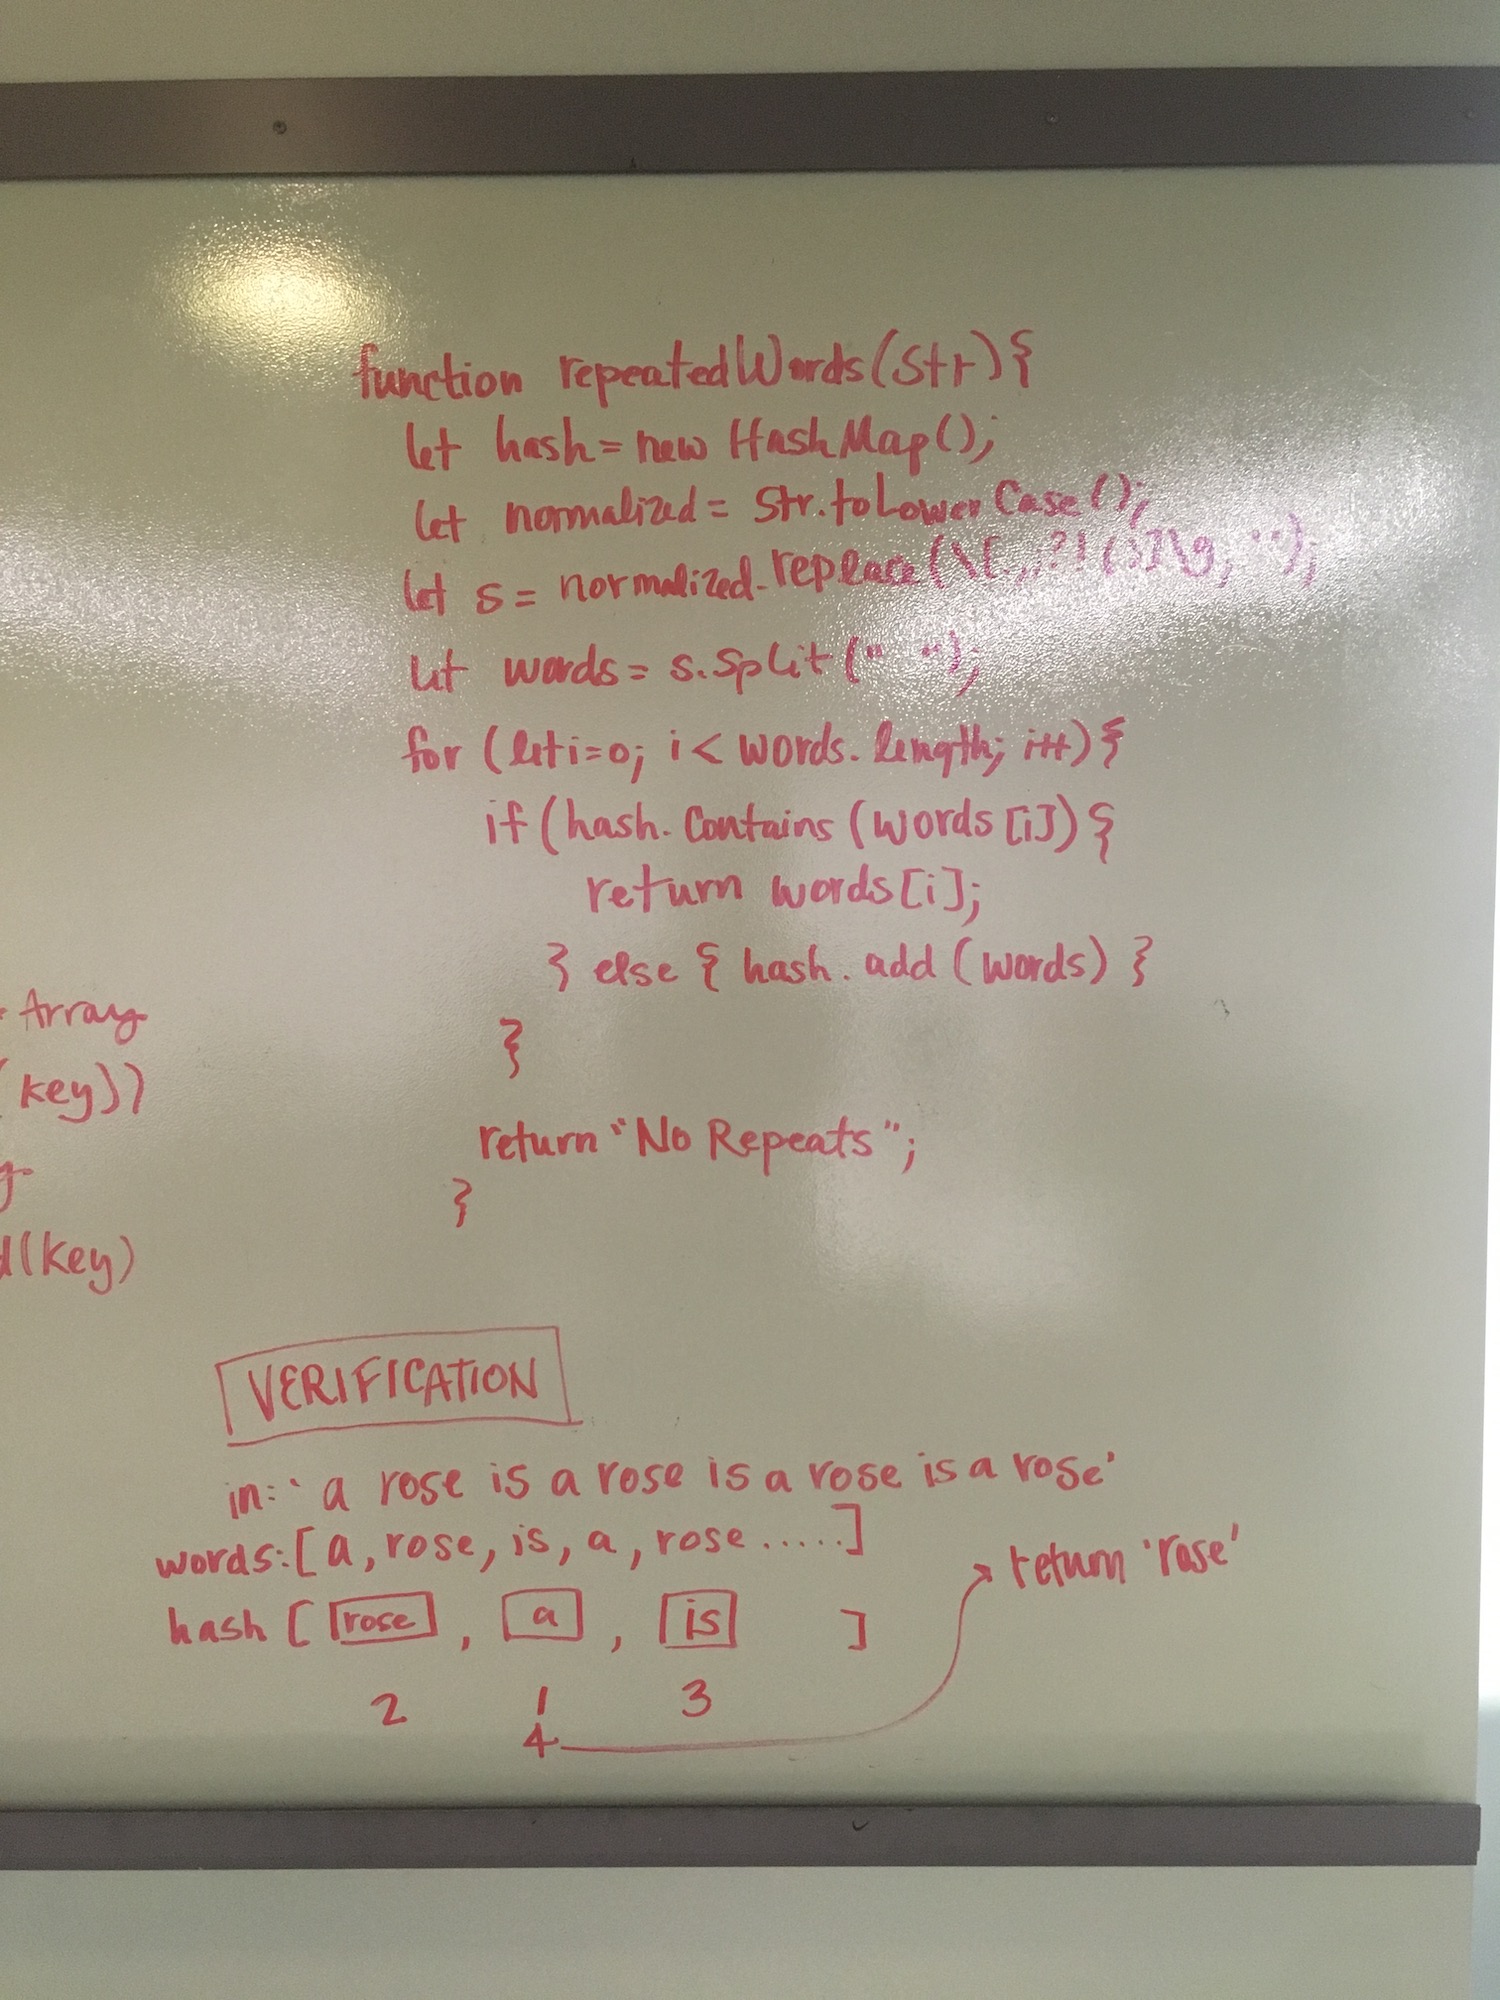 function repeatedWords(str){
let hash = new HashMap();
let normalized = str.toLowerCase();
let s = normalized.replace(
let words = s.split(" ");
for (let i=0; i < words.length; i++){
if (hash.contains(words[i]){
return words[i];
} else { hash.add(words) }
}
return "No Repeats";
}
Array
(key))
(key)
VERIFICATION
in: 'a rose is a rose is a rose is a rose'
words:[a, rose, is, a, rose.....]
return 'rose'
hash [ rose , a , is ]
2 1 3
4